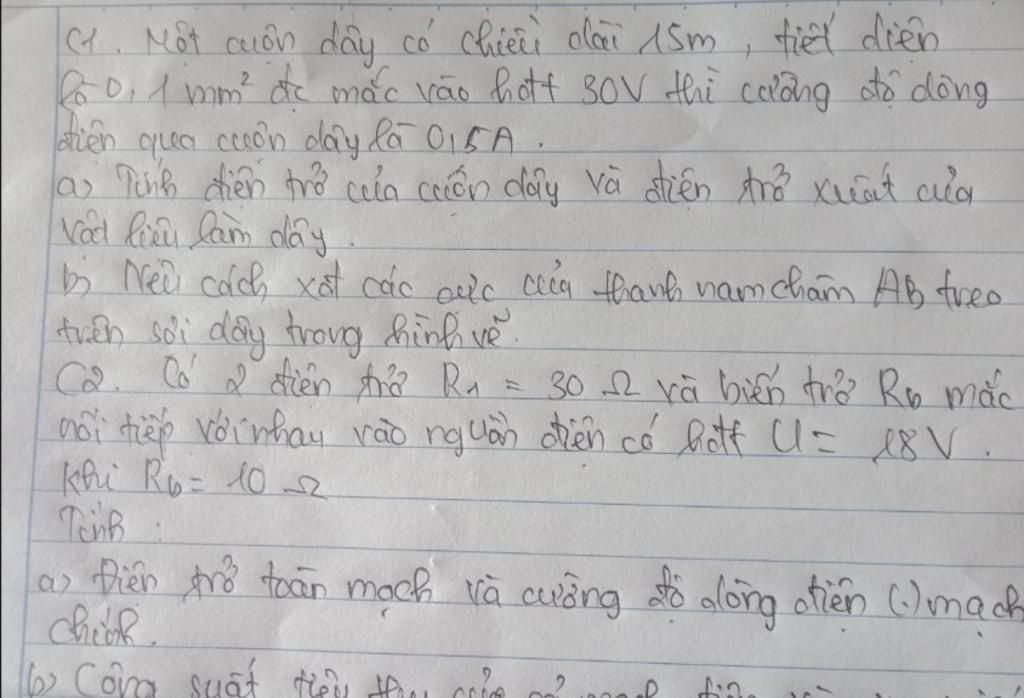 C1. Một cuộn dây có chiều dài 15m, tiết diện
là 0,1 mm² đc mắc vào hđt 30V thì cường độ dòng
điện qua cuộn dây là 0,5A.
a) Tính điện trở của cuộn dây và điện trở xuất của
vật liệu làm dây.
b) Nêu cách xđ các cực của thanh nam châm AB treo
trên sợi dây trong hình vẽ.
C2. Có 2 điện trở R₁ = 30 Ω và biến trở Rb mắc
nối tiếp với nhau vào nguồn điện có hđt U = 18V.
Khi Rb = 10 Ω
Tính :
a) Điện trở toàn mạch và cường độ dòng điện (.) mạch
chính.
b) Công suất tiêu thụ của cả mạch điện